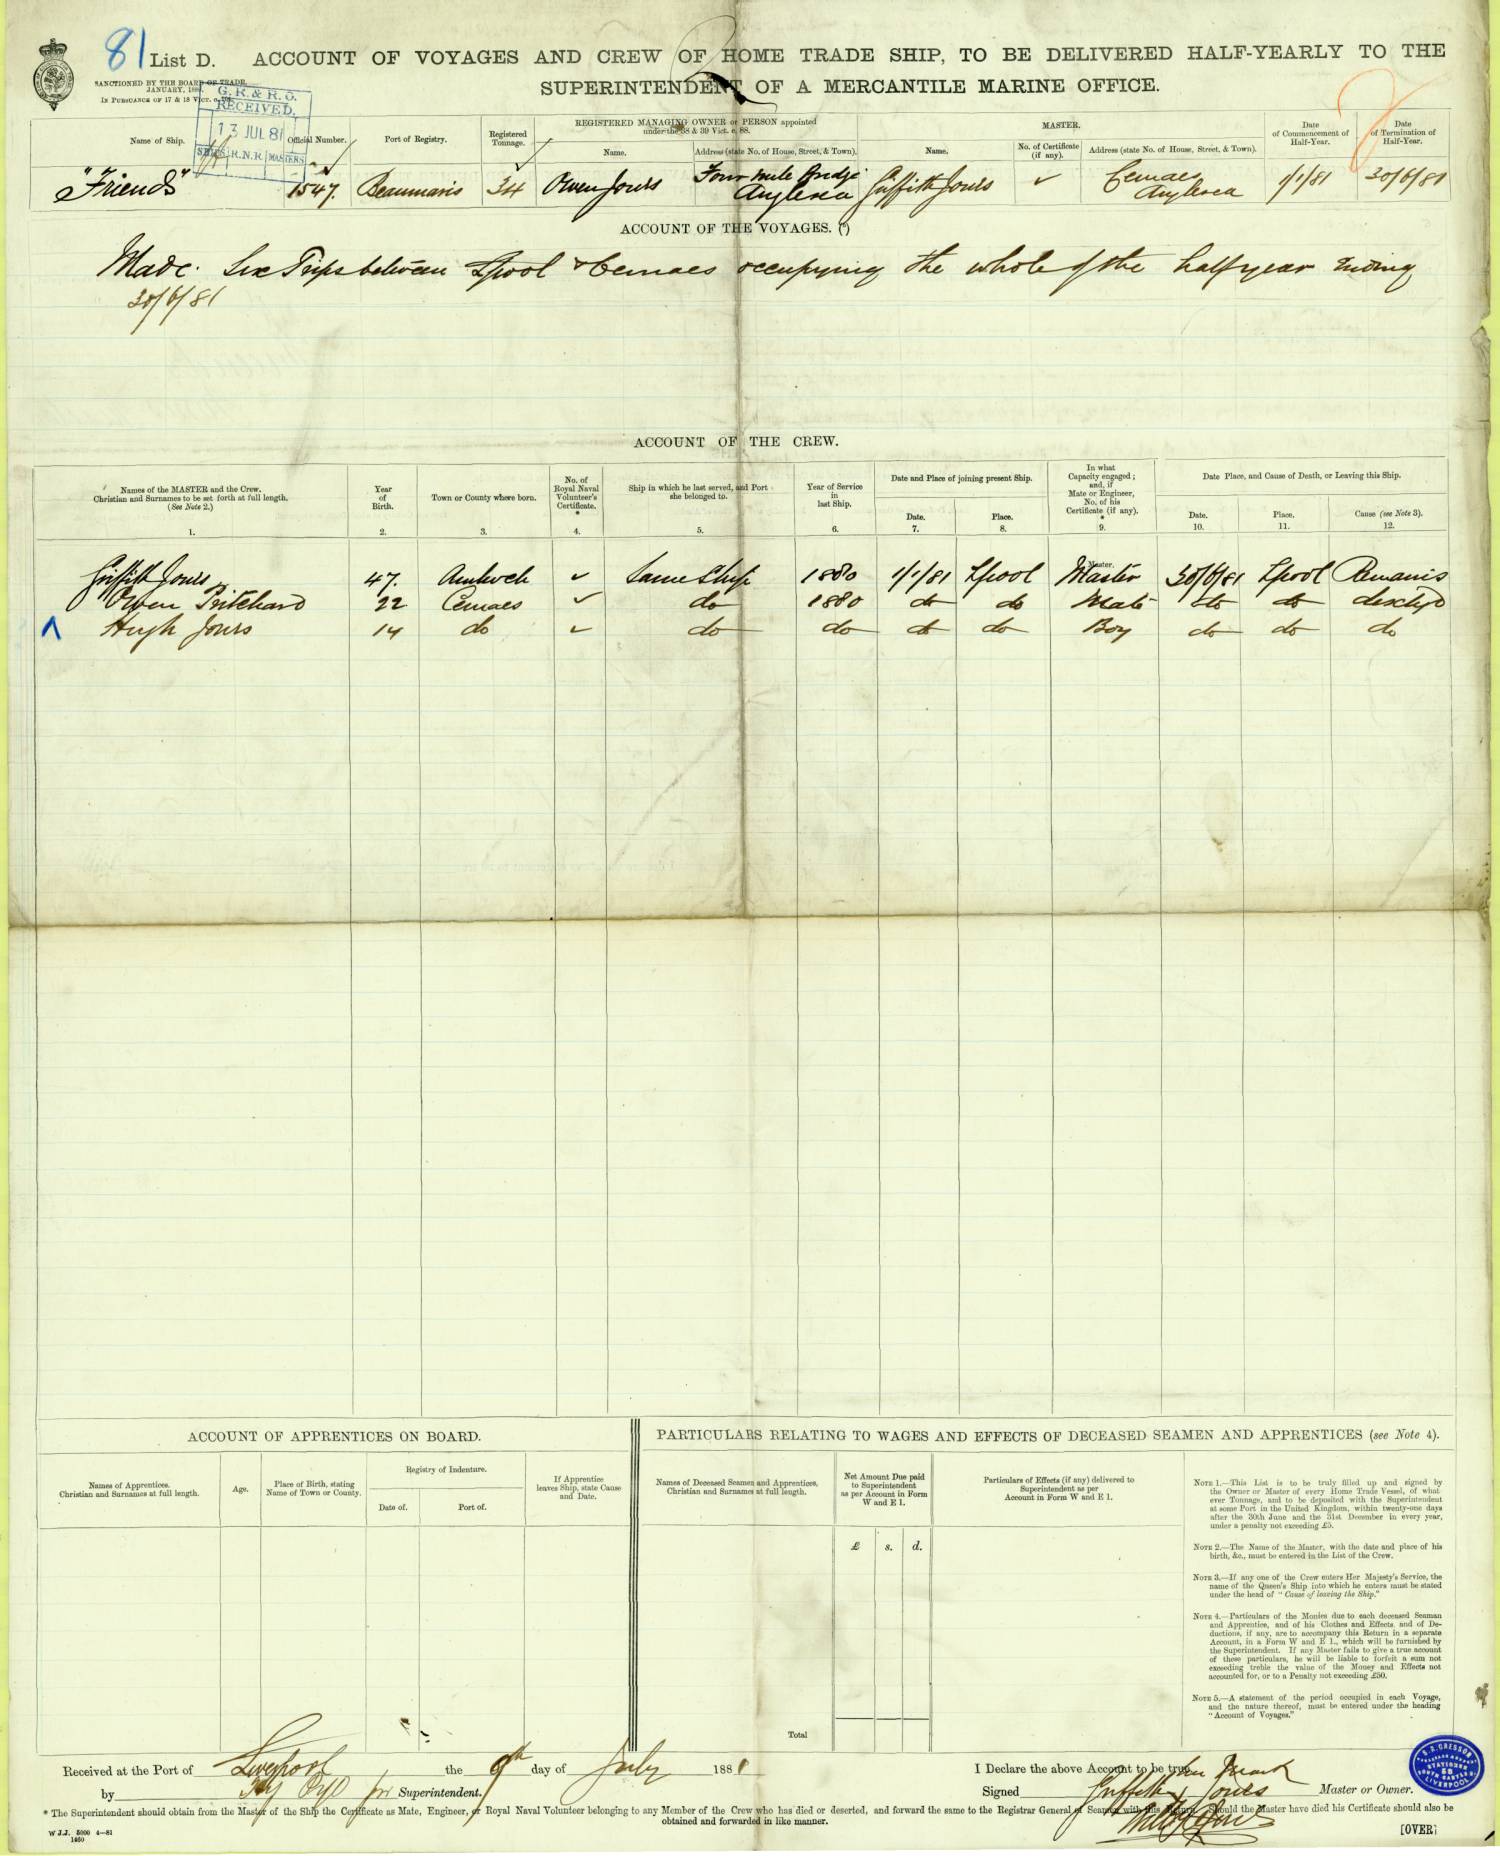 81 List D. ACCOUNT OF VOYAGES AND CREW OF HOME TRADE SHIP, TO BE DELIVERED HALF-YEARLY TO THE
SUPERINTENDENT OF A MERCANTILE MARINE OFFICE.
SANCTIONED BY THE BOARD OF TRADE,
JANUARY, 188
IN PURSUANCE OF 17 & 18 VICT. c.
G. R. & R. O.
RECEIVED.
13 JUL 81
SHIPS R.N.R. MASTERS
Name of Ship.
Official Number.
Port of Registry.
Registered Tonnage.
REGISTERED MANAGING OWNER or PERSON appointed
under the 38 & 39 Vict. c. 88.
Name.
Address (state No. of House, Street, & Town).
MASTER.
Name.
No. of Certificate (if any).
Address (state No. of House, Street, & Town).
Date of Commencement of Half-Year.
Date of Termination of Half-Year.
"Friends" 1547. Beaumaris 34 Owen Jones Four Mile Bridge Anglesea Griffith Jones Cemaes Anglesea 1/1/81 30/6/81
ACCOUNT OF THE VOYAGES. (*)
Made Six Trips between Lpool & Cemaes occupying the whole of the half year ending
30/6/81
ACCOUNT OF THE CREW.
Names of the MASTER and the Crew.
Christian and Surnames to be set forth at full length.
(See Note 2.)
1.
Year of Birth.
2.
Town or County where born.
3.
No. of Royal Naval Volunteer's Certificate.
*
4.
Ship in which he last served, and Port she belonged to.
5.
Year of Service in last Ship.
6.
Date and Place of joining present Ship.
Date.
7.
Place.
8.
In what Capacity engaged; and, if Mate or Engineer, No. of his Certificate (if any).
*
9.
Date Place, and Cause of Death, or Leaving this Ship.
Date.
10.
Place.
11.
Cause (see Note 3).
12.
Master.
Griffith Jones 47. Amlwch Same Ship 1880 1/1/81 Lpool Master 30/6/81 Lpool Remains
Owen Pritchard 22 Cemaes do 1880 do do Mate do do dischgd
Hugh Jones 14 do do do do do Boy do do do
ACCOUNT OF APPRENTICES ON BOARD.
Names of Apprentices.
Christian and Surnames at full length.
Age.
Place of Birth, stating Name of Town or County.
Registry of Indenture.
Date of.
Port of.
If Apprentice leaves Ship, state Cause and Date.
PARTICULARS RELATING TO WAGES AND EFFECTS OF DECEASED SEAMEN AND APPRENTICES (see Note 4).
Names of Deceased Seamen and Apprentices,
Christian and Surnames at full length.
Net Amount Due paid to Superintendent as per Account in Form W and E 1.
£ s. d.
Particulars of Effects (if any) delivered to Superintendent as per Account in Form W and E 1.
Total
NOTE 1.—This List is to be truly filled up and signed by
the Owner or Master of every Home Trade Vessel, of what
ever Tonnage, and to be deposited with the Superintendent
at some Port in the United Kingdom, within twenty-one days
after the 30th June and the 31st December in every year,
under a penalty not exceeding £5.
NOTE 2.—The Name of the Master, with the date and place of his
birth, &c., must be entered in the List of the Crew.
NOTE 3.—If any one of the Crew enters Her Majesty's Service, the
name of the Queen's Ship into which he enters must be stated
under the head of "Cause of leaving the Ship."
NOTE 4.—Particulars of the Monies due to each deceased Seaman
and Apprentice, and of his Clothes and Effects, and of De-
ductions, if any, are to accompany this Return in a separate
Account, in a Form W and E 1., which will be furnished by
the Superintendent. If any Master fails to give a true account
of these particulars, he will be liable to forfeit a sum not
exceeding treble the value of the Money and Effects not
accounted for, or to a Penalty not exceeding £50.
NOTE 5.—A statement of the period occupied in each Voyage,
and the nature thereof, must be entered under the heading
"Account of Voyages."
Received at the Port of Liverpool the 9th day of July 1881
by for Superintendent.
I Declare the above Account to be true,
Mark
Signed Griffith x Jones Master or Owner.
* The Superintendent should obtain from the Master of the Ship the Certificate as Mate, Engineer, or Royal Naval Volunteer belonging to any Member of the Crew who has died or deserted, and forward the same to the Registrar General of Seamen with this Return. Should the Master have died his Certificate should also be
obtained and forwarded in like manner.
W J.J. 5000 4—81
1460
[OVER]
STATIONER
LIVERPOOL